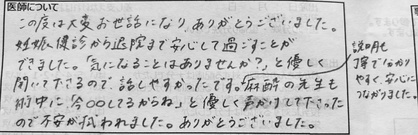 医師について
この度は大変お世話になり、ありがとうございました。
妊娠健診から退院まで安心して過ごすことが
できました。「気になることはありませんか?」と優しく
聞いて下さるので、話しやすかったです。麻酔の先生も
術中に、今○○してるからね」と優しく声かけして下さった
ので不安が拭われました。ありがとうございました。
説明も
丁寧で分かり
やすく、安心に
つながりました。